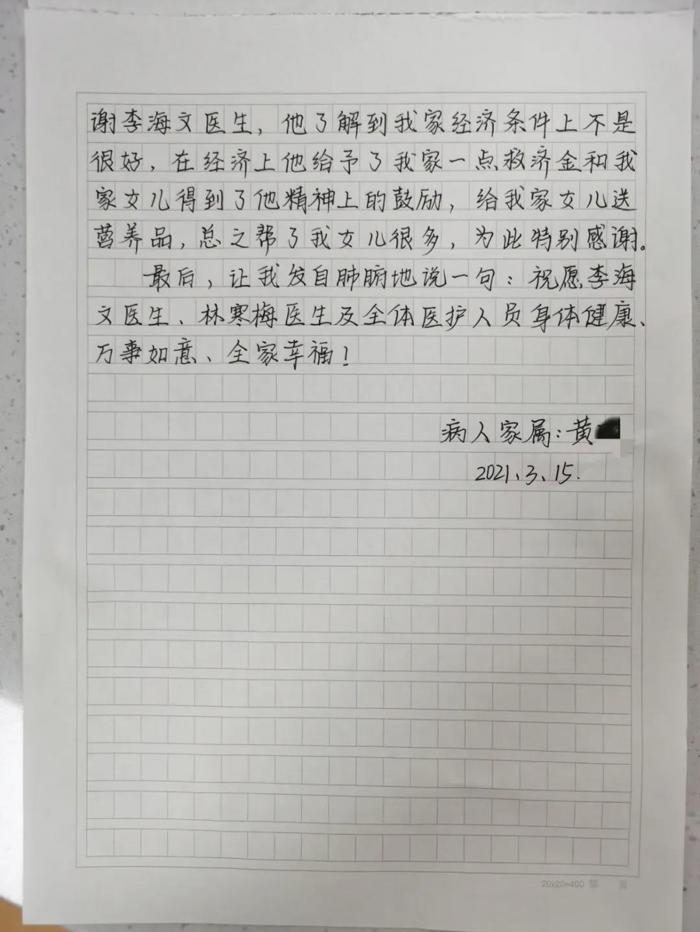 谢李海文医生，他了解到我家经济条件上不是
很好，在经济上他给予了我家一点救济金和我
家女儿得到了他精神上的鼓励，给我家女儿送
营养品，总之帮了我女儿很多，为此特别感谢。
最后，让我发自肺腑地说一句：祝愿李海
文医生、林寒梅医生及全体医护人员身体健康、
万事如意、全家幸福！
病人家属：黄
2021.3.15.
20x20=400 第 页